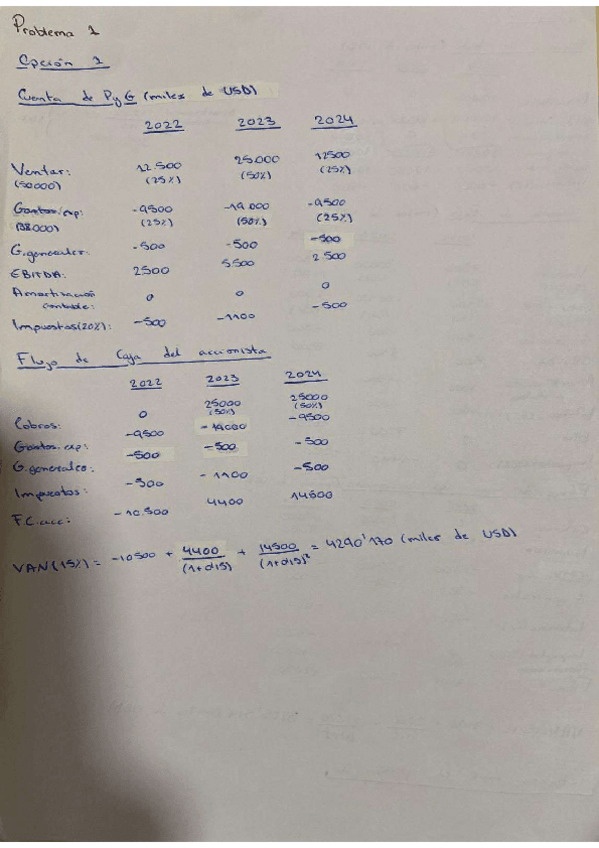 Problema 1
Opción 1
Cuenta de PyG (miles de USD)
2022 2023 2024
Ventas: 12.500 25.000 12500
(50000) (25%) (50%) (25%)
Gastos exp: -9500 -19.000 -9500
(38000) (25%) (50%) (25%)
G.generales: -500 -500 -500
EBITDA: 2500 5500 2500
Amortización contable: 0 0 0
Impuestos (20%): -500 -1100 -500
Flujo de Caja del accionista
2022 2023 2024
Cobros: 0 25000 25000
(50%) (50%)
Gastos exp: -9500 -19000 -9500
G.generales: -500 -500 -500
Impuestos: -500 -1100 -500
F.C.acc: -10.500 4400 14500
VAN(15%) = -10500 + 4400/(1+0'15) + 14500/(1+0'15)² = 4290'170 (miles de USD)